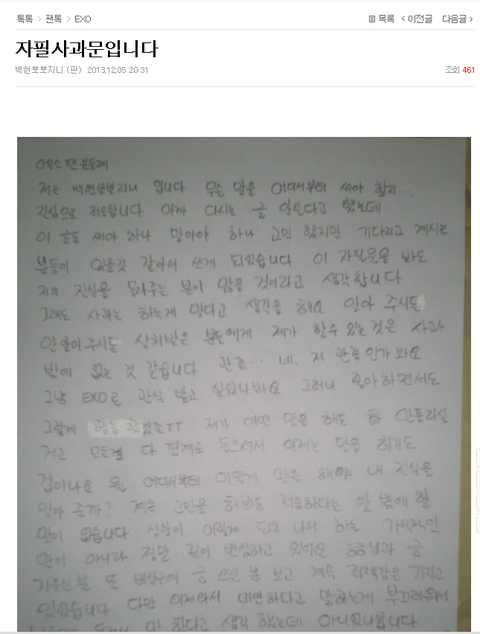 톡톡 > 팬톡 > EXO
목록 < 이전글 다음글 >
자필사과문입니다
백현뽀뽀지니 (판) 2013.12.05 20:31
조회 461
엑소 팬 분들께
저는 입니다 무슨 말을 어디서부터 써야 할지...
진심으로 죄송합니다 아까 다시는 글 안쓴다고 했는데
이 글도 써야 하나 말아야 하나 고민 했지만 기다리고 계시는
분들이 있을것 같아서 쓰게 되었습니다 이 자필문을 봐도
저의 진심을 분이 많을 것이라고 생각합니다
그래도 사과는 하는게 맞다고 생각을 해요 알아 주시든
안알아주시든 상처받은 분들에게 제가 할수 있는것은 사과
밖에 없는 것 같습니다 관종... 네, 저 관종인가봐요.
그냥 EXO로 관심 받고 싶었나봐요 그러니 좋아하면서도
그렇게 ㅜㅜ 제가 어떤 말을 해도 다 안믿으실
거고 모든걸 다 핑계로 들으셔서 이제는 말을 하기도
겁이나요 뭘 어디서부터 어떻게 말을 해야 내 진심을
알아 줄까? 계속 고민을 해봐도 죄송하다는 말 밖에 할
말이 없습니다 상황이 이렇게 되고 나서 하는 가식적인
말이 아니라 정말 깊이 반성하고 있어요. 글
또 글 쓰신 분 보고 계속 죄책감을 가지고
있었습니다 다만 이제와서 미안하다고 말하는게 부끄러워서
생각 했는데 아니었나봅니다